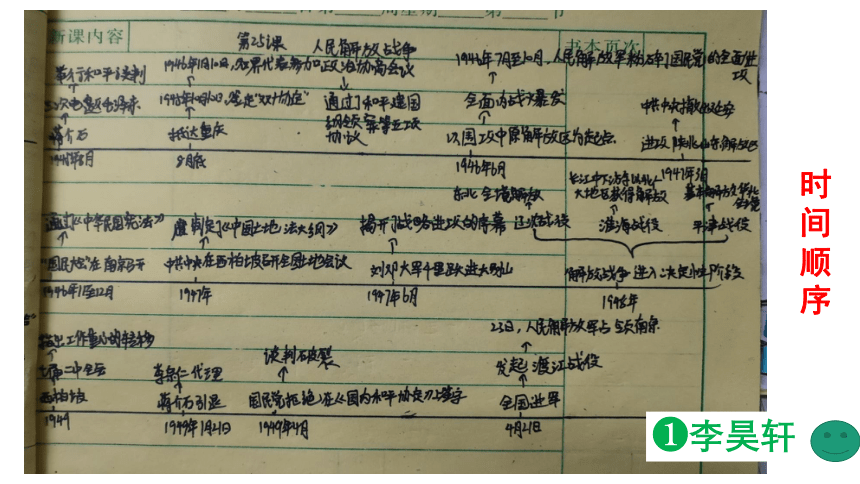 新课内容
书本页次
第25课 人民解放战争
1946年1月10日,各界代表参加政治协商会议
1946年7月至10月,人民解放军粉碎了国民党的全面进攻
举行和平谈判
三次电邀毛泽东
蒋介石
1945年8月
1945年10月10日,签定"双十协定"
抵达重庆
8月底
通过了和平建国纲领案等五项协议
全面内战爆发
以围攻中原解放区为起点
1946年6月
中共中央撤出延安
进攻陕北、山东解放区
1947年3月
通过《中华民国宪法》
"国民大会"在南京召开
1946年11至12月
制定了《中国土地法大纲》
中共中央在西柏坡召开全国土地会议
1947年
揭开了战略进攻的序幕
刘邓大军千里跃进大别山
1947年6月
东北全境解放
辽沈战役
长江中下游以北大地区获得解放
淮海战役
基本解放华北全境
平津战役
解放战争进入决定性阶段
1948年
提出工作重心的转移
七届二中全会
西柏坡
1949
李宗仁代理
蒋介石引退
1949年1月21日
谈判破裂
国民党拒绝在《国内和平协定》上签字
1949年4月
23日,人民解放军占领南京
发起渡江战役
全国进军
4月21日
时间顺序
❶李昊轩